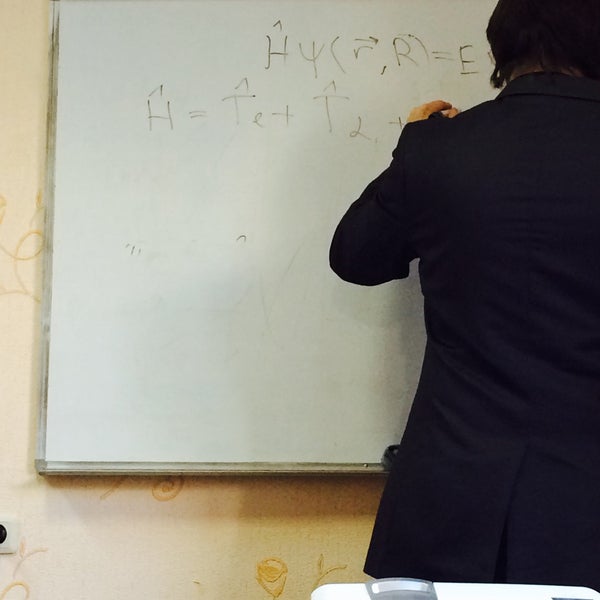 Ĥ ψ(r⃗, R⃗) = E
Ĥ = T̂e + T̂α, +